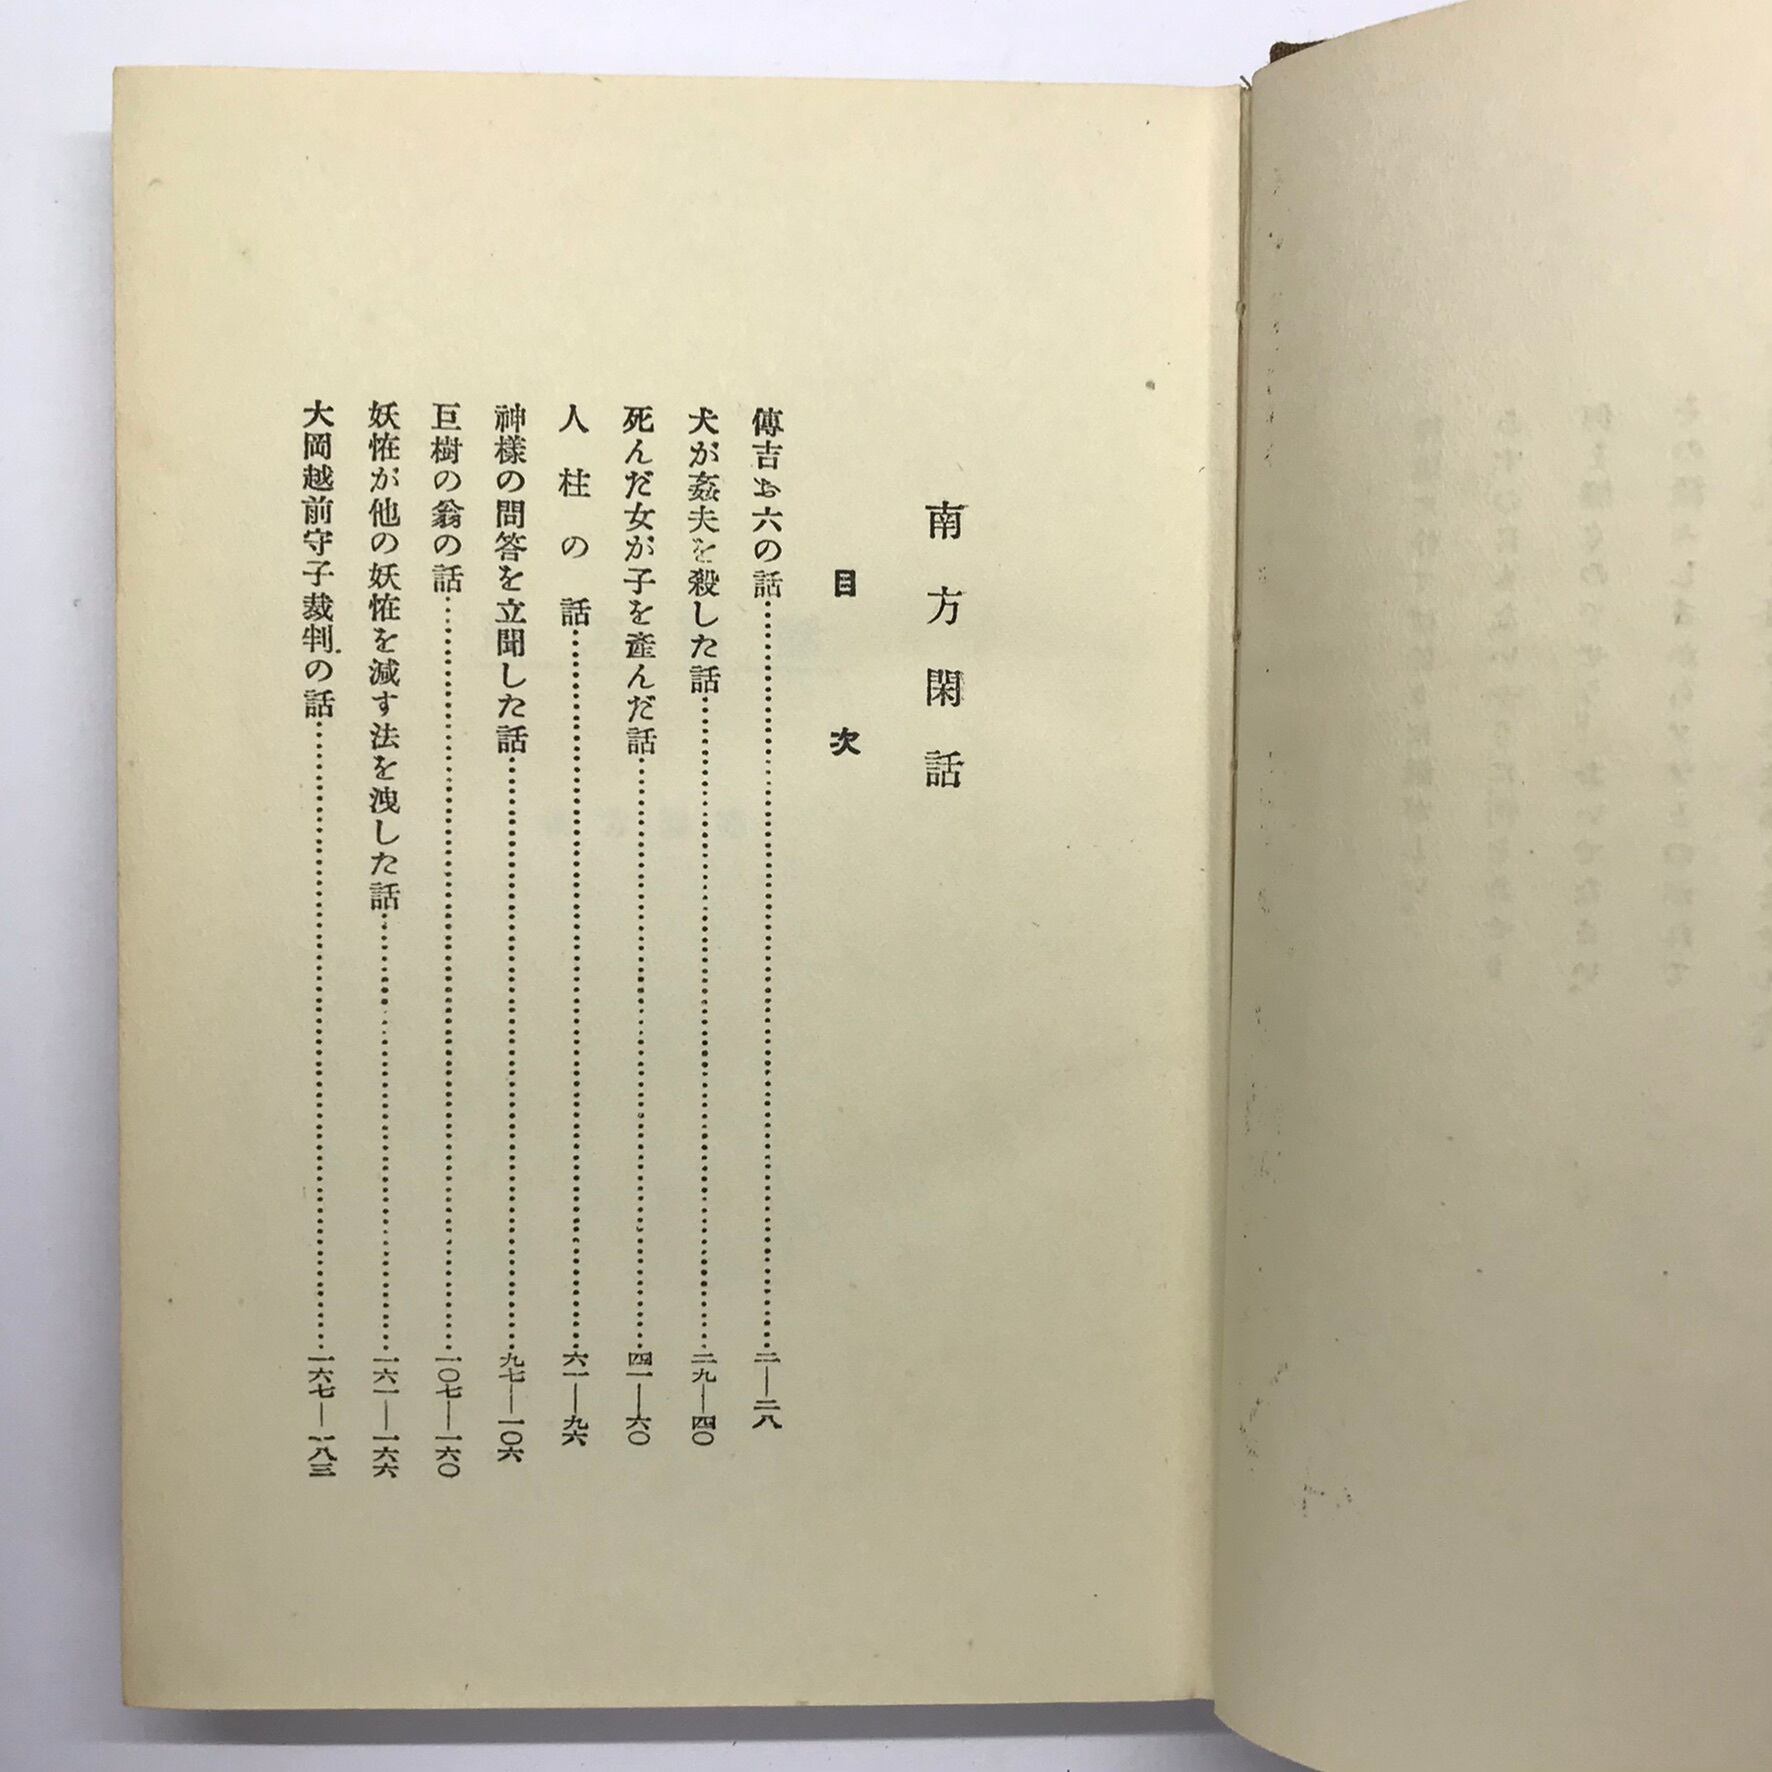 南方閑話
目次
傳吉お六の話……二―二八
犬が姦夫を殺した話……二九―四〇
死んだ女が子を產んだ話……四一―六〇
人柱の話……六一―九六
神樣の問答を立聞した話……九七―一〇六
巨樹の翁の話……一〇七―一六〇
妖恠が他の妖恠を滅す法を洩した話……一六一―一六六
大岡越前守子裁判の話……一六七―一八三